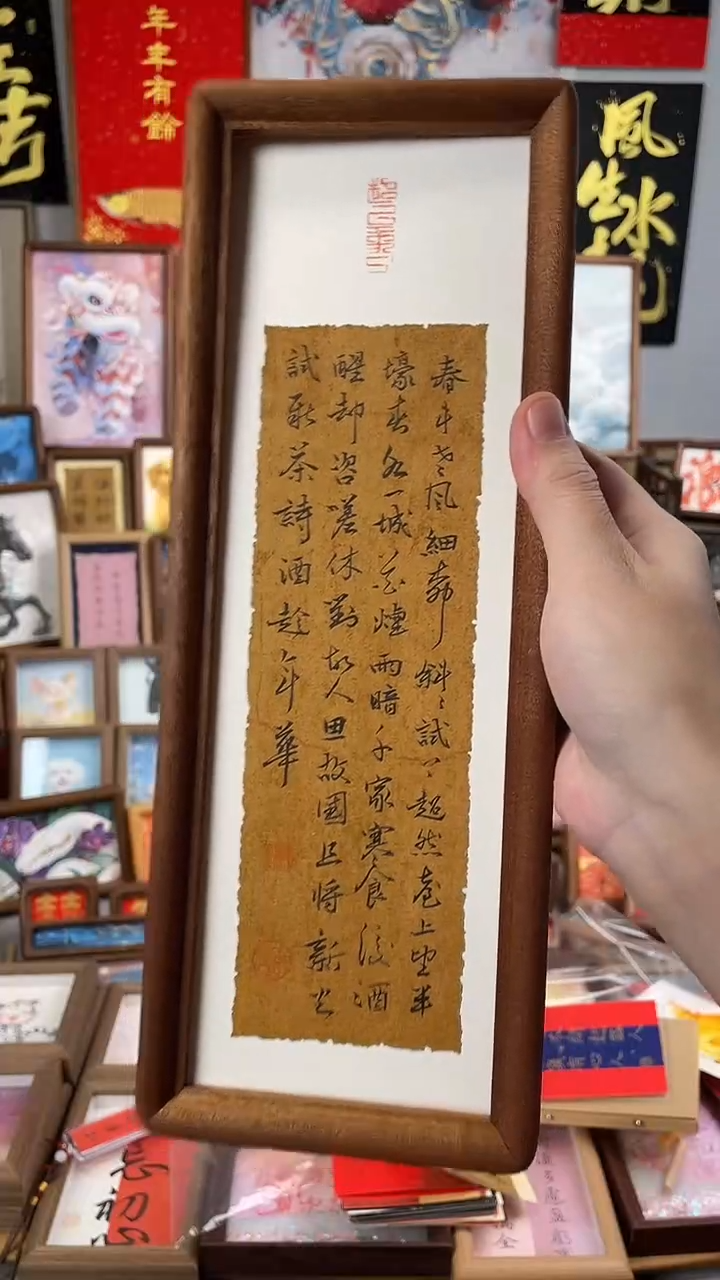 春未老風細柳斜〻試上超然臺上望半
壕春水一城花煙雨暗千家寒食後酒
醒却咨嗟休對故人思故國且將新火
試新茶詩酒趁年華
年年有餘
風
生水
忘初心